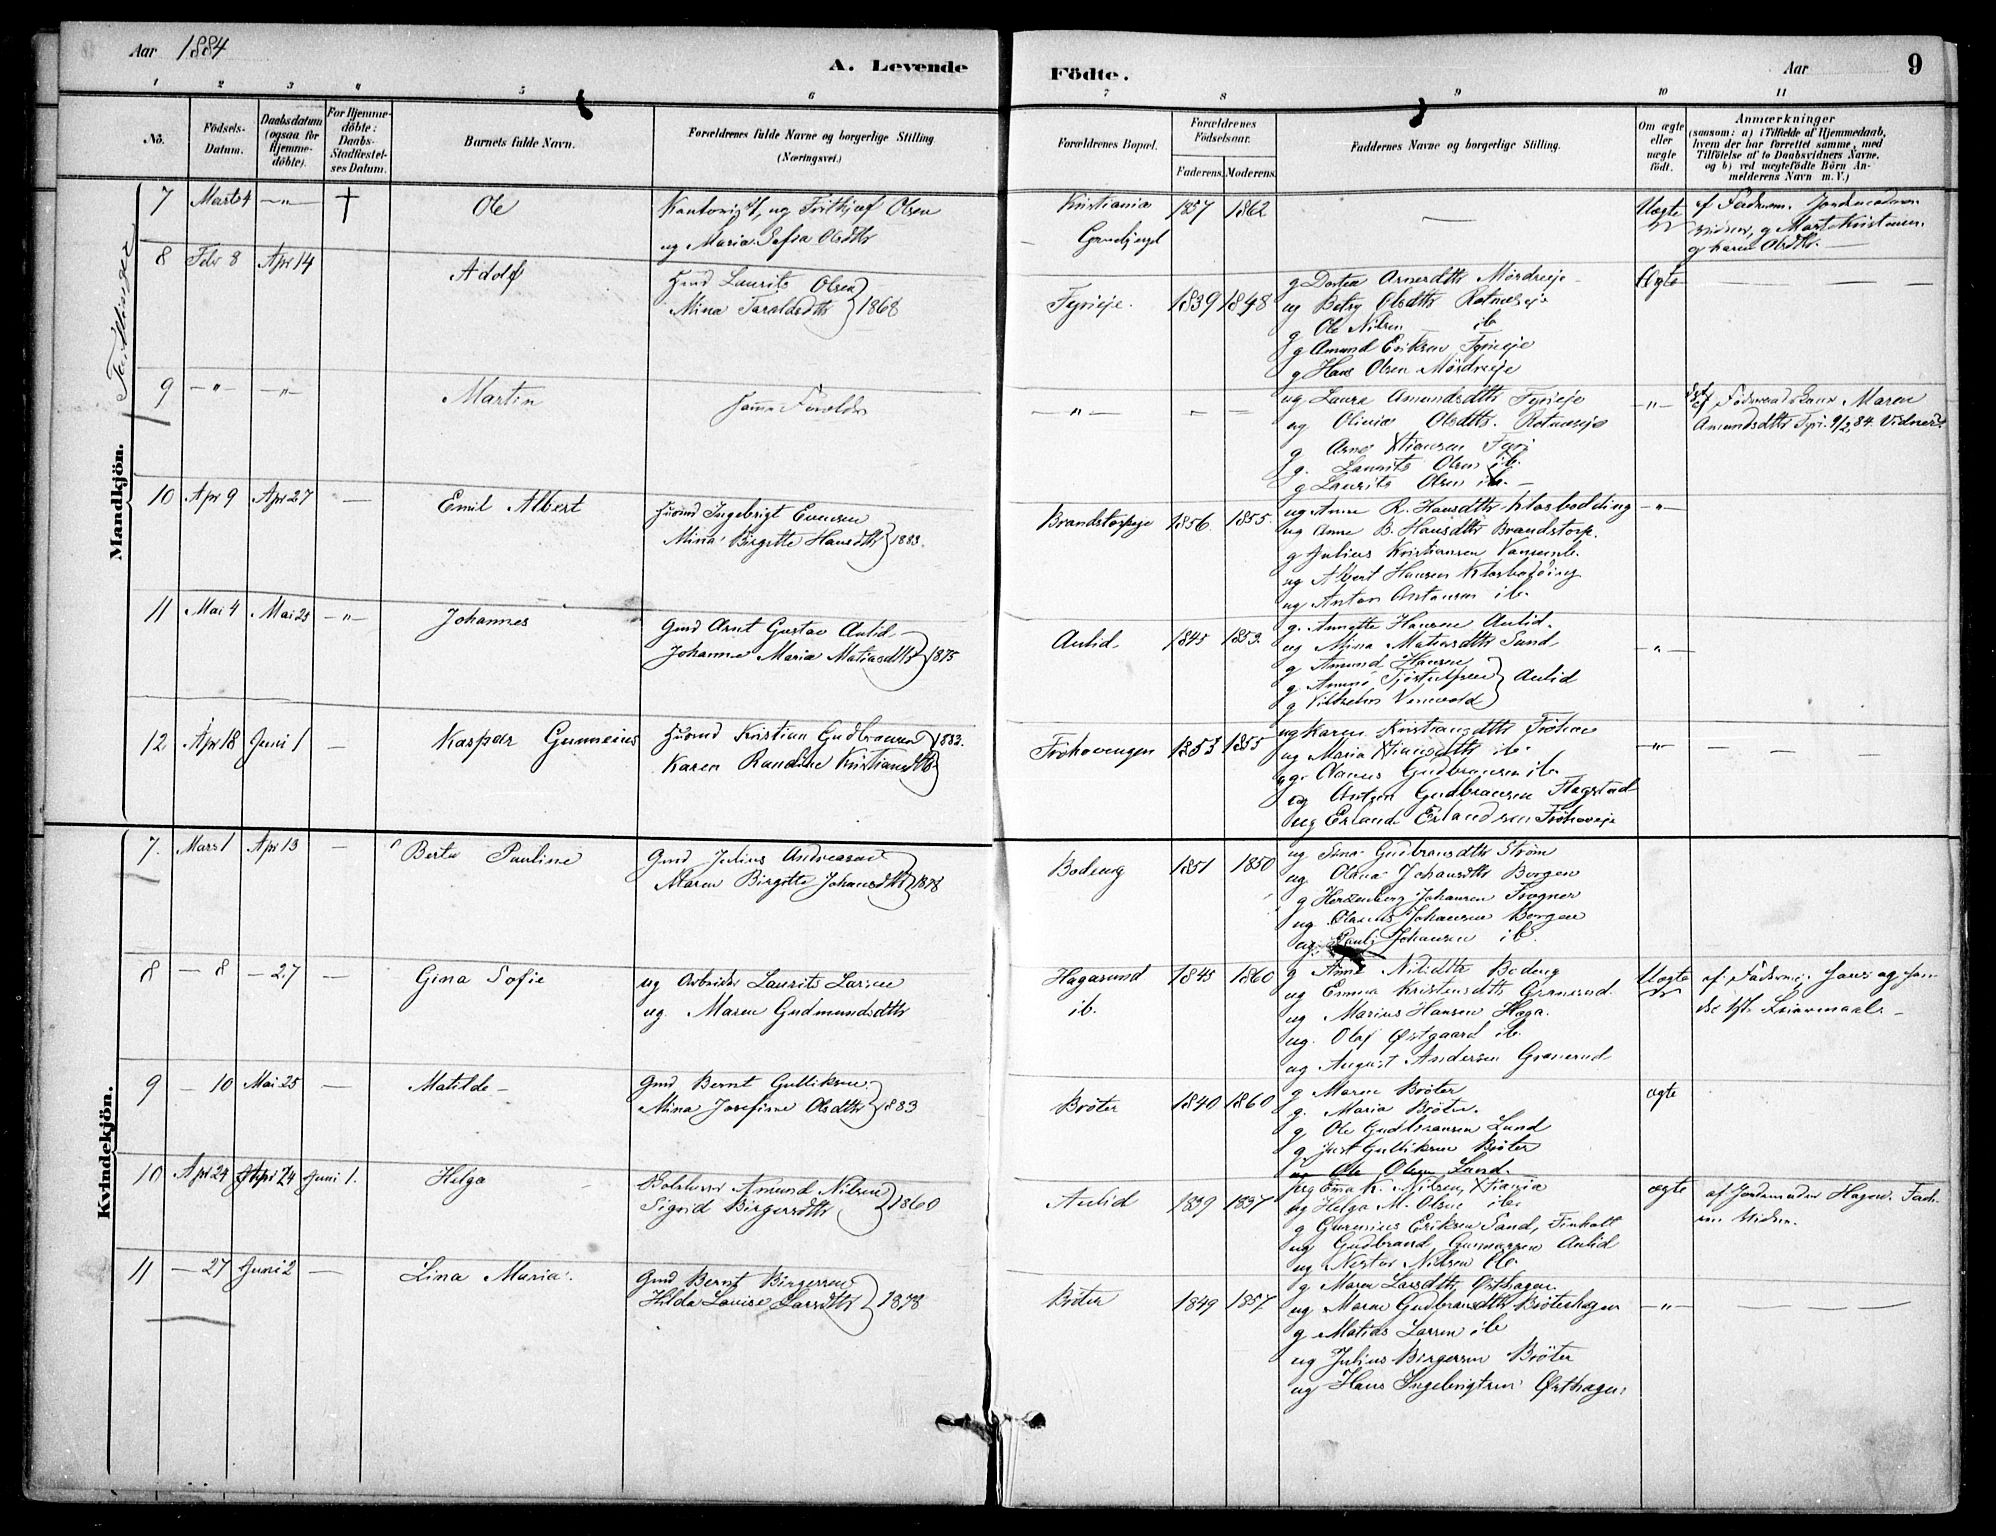 Aar 1884
A. Levende
Födte.
Aar
9
1 2 3 4 5 6 7 8 9 10 11
No.
Födsels-Datum.
Daabsdatum (ogsaa for Hjemme-döbte).
For Hjemme-döbte: Daabs-Stadfæstel-ses Datum.
Barnets fulde Navn.
Forældrenes fulde Navne og borgerlige Stilling
(Næringsvei.)
Forældrenes Bopæl.
Forældrenes Födselsaar.
Faderens. Moderens.
Faddernes Navne og borgerlige Stilling.
Om ægte eller uægte födt.
Anmærkninger
(saasom: a) i Tilfælde af Hjemmedaab, hvem der har forrettet samme, med Tilföielse af to Daabsvidners Navne, og b) ved uægtefödte Börn An-melderens Navn m. V.)
Mandkjön.
Tvillinger
7 Marts 4 — " — † Ole
Olsen
og Maria Sofia Olsdtr
Kristiania
1857 1862
—
Uægte
8 Febr 8 Apr 14 Adolf
Laurits Olsen
Mina Taraldsdtr } 1868
Fyrieje. 1839 1848
g Dortea Arnesdtr Mördreeje
ug Betsy Olsdtr Rotnæseje
g Ole Nilsen ib
g Amund Eriksen Fyrieje
g Hans Olsen Mördreeje
Ægte
9 — " — — " — Martin
Samme Forældre
— " —
ug Laura Amundsdtr Fyrieje
ug Olinia Olsdtr. Rotnæseje
g Arne Xtiansen Fyri
g. Laurits Olsen ib.
g Laurits Olsen ib. —
— " —
Maren
Amundsdtr Fyri. 9/2 84.
10 Apr 9 Apr 27 — Emil Albert
Ingebrigt Evensen
Mina Birgitte Hansdtr } 1883.
Brandstorpeje 1856. 1855.
ug Anne R. Hansdtr Klosbødding
ug Anne B. Hansdtr Brandstorp.
g Julius Kristiansen
ug Albert Hansen Klosbødding
ug Anton Antonsen ib.
— " —
11 Mai 4 Mai 25 — " — Johannes
Gmd Arnt Gustav Aulid
Johanne Maria Matiasdtr } 1875
Aulid 1845 1853.
g. Annette Hansen Aulid.
ug Mina Matiasdtr Sund
g Amund Hansen
} Aulid
— " —
12 Apr 18 Juni 1 — Kaspar Gunnerius
Kristian Gudbransen } 1883.
Karen Randine Kristiansdtr
Fröhovengen 1853 1855
ug Karen Kristiansdtr Fröhov
ug Maria Xtiansdtr ib.
Olaves Gudbransen ib.
ug Anton Gudbransen Flagstad
ug Erland Erlandsen Fröhoveje
— " — — — —
Kvindekjön.
7. Mars 1 Apr 13 — Berta Pauline
Gmd Julius Andreasen
Maren Birgitte Johansdtr } 1878
Bodeng 1851 1850
ug Gudbransdtr Ström
ug Olava Johansdtr Borgen
g Hertzenberg Johansen Frogner
ug Olavus Johansen Borgen
ug. Johansen ib.
8 — 8 — 27 — Gina Sofie
ug Arbeider Laurits Larsen
ug. Maren Gudmundsdtr
Hagasund
ib.
1845 1860
g Anne Nilsdtr Bodeng
ug Emma Kristensdtr Granerud.
ug Marius Hansen Haga.
ug. Olaf Østgaard ib.
ug August Andersen Granerud
Uægte
9 — 10 Mai 25 — Matilde —
Gmd Bernt Gulliksen
Mina Josefine Olsdtr } 1883
Bröter 1840 1860
g Maren Bröter
g. Maria Bröter.
g Ole Gudbransen Lund
g Just Gulliksen Bröter
ug Ole Olsen Lund.
ægte
10 Apr 24 Apr 24 Juni 1. Helga
Amund Nilsen
Sigrid Birgersdtr } 1860
Aulid 1839 1837
Ema K. Nilsen, Xtiania
ug Helga M. Olsen ib.
g Gurenius Eriksen Sand,
ug Gudbrand Gunnarsen Aulid
ug Nestor Nilsen ib.
ægte
af Jordemoder Hagen.
11 — 27 Juni 2 — Lina Maria.
Gmd Bernt Birgersen
Hilda Lovise Larsdtr } 1878
Bröter 1849 1857
g Maren Larsdtr Østhagen
ug Maren Gudbransdtr Bröterhagen
g Matias Larsen ib
ug Julius Birgersen Bröter
ug Hans Ingebrigtsen Østhagen
— " — — — —